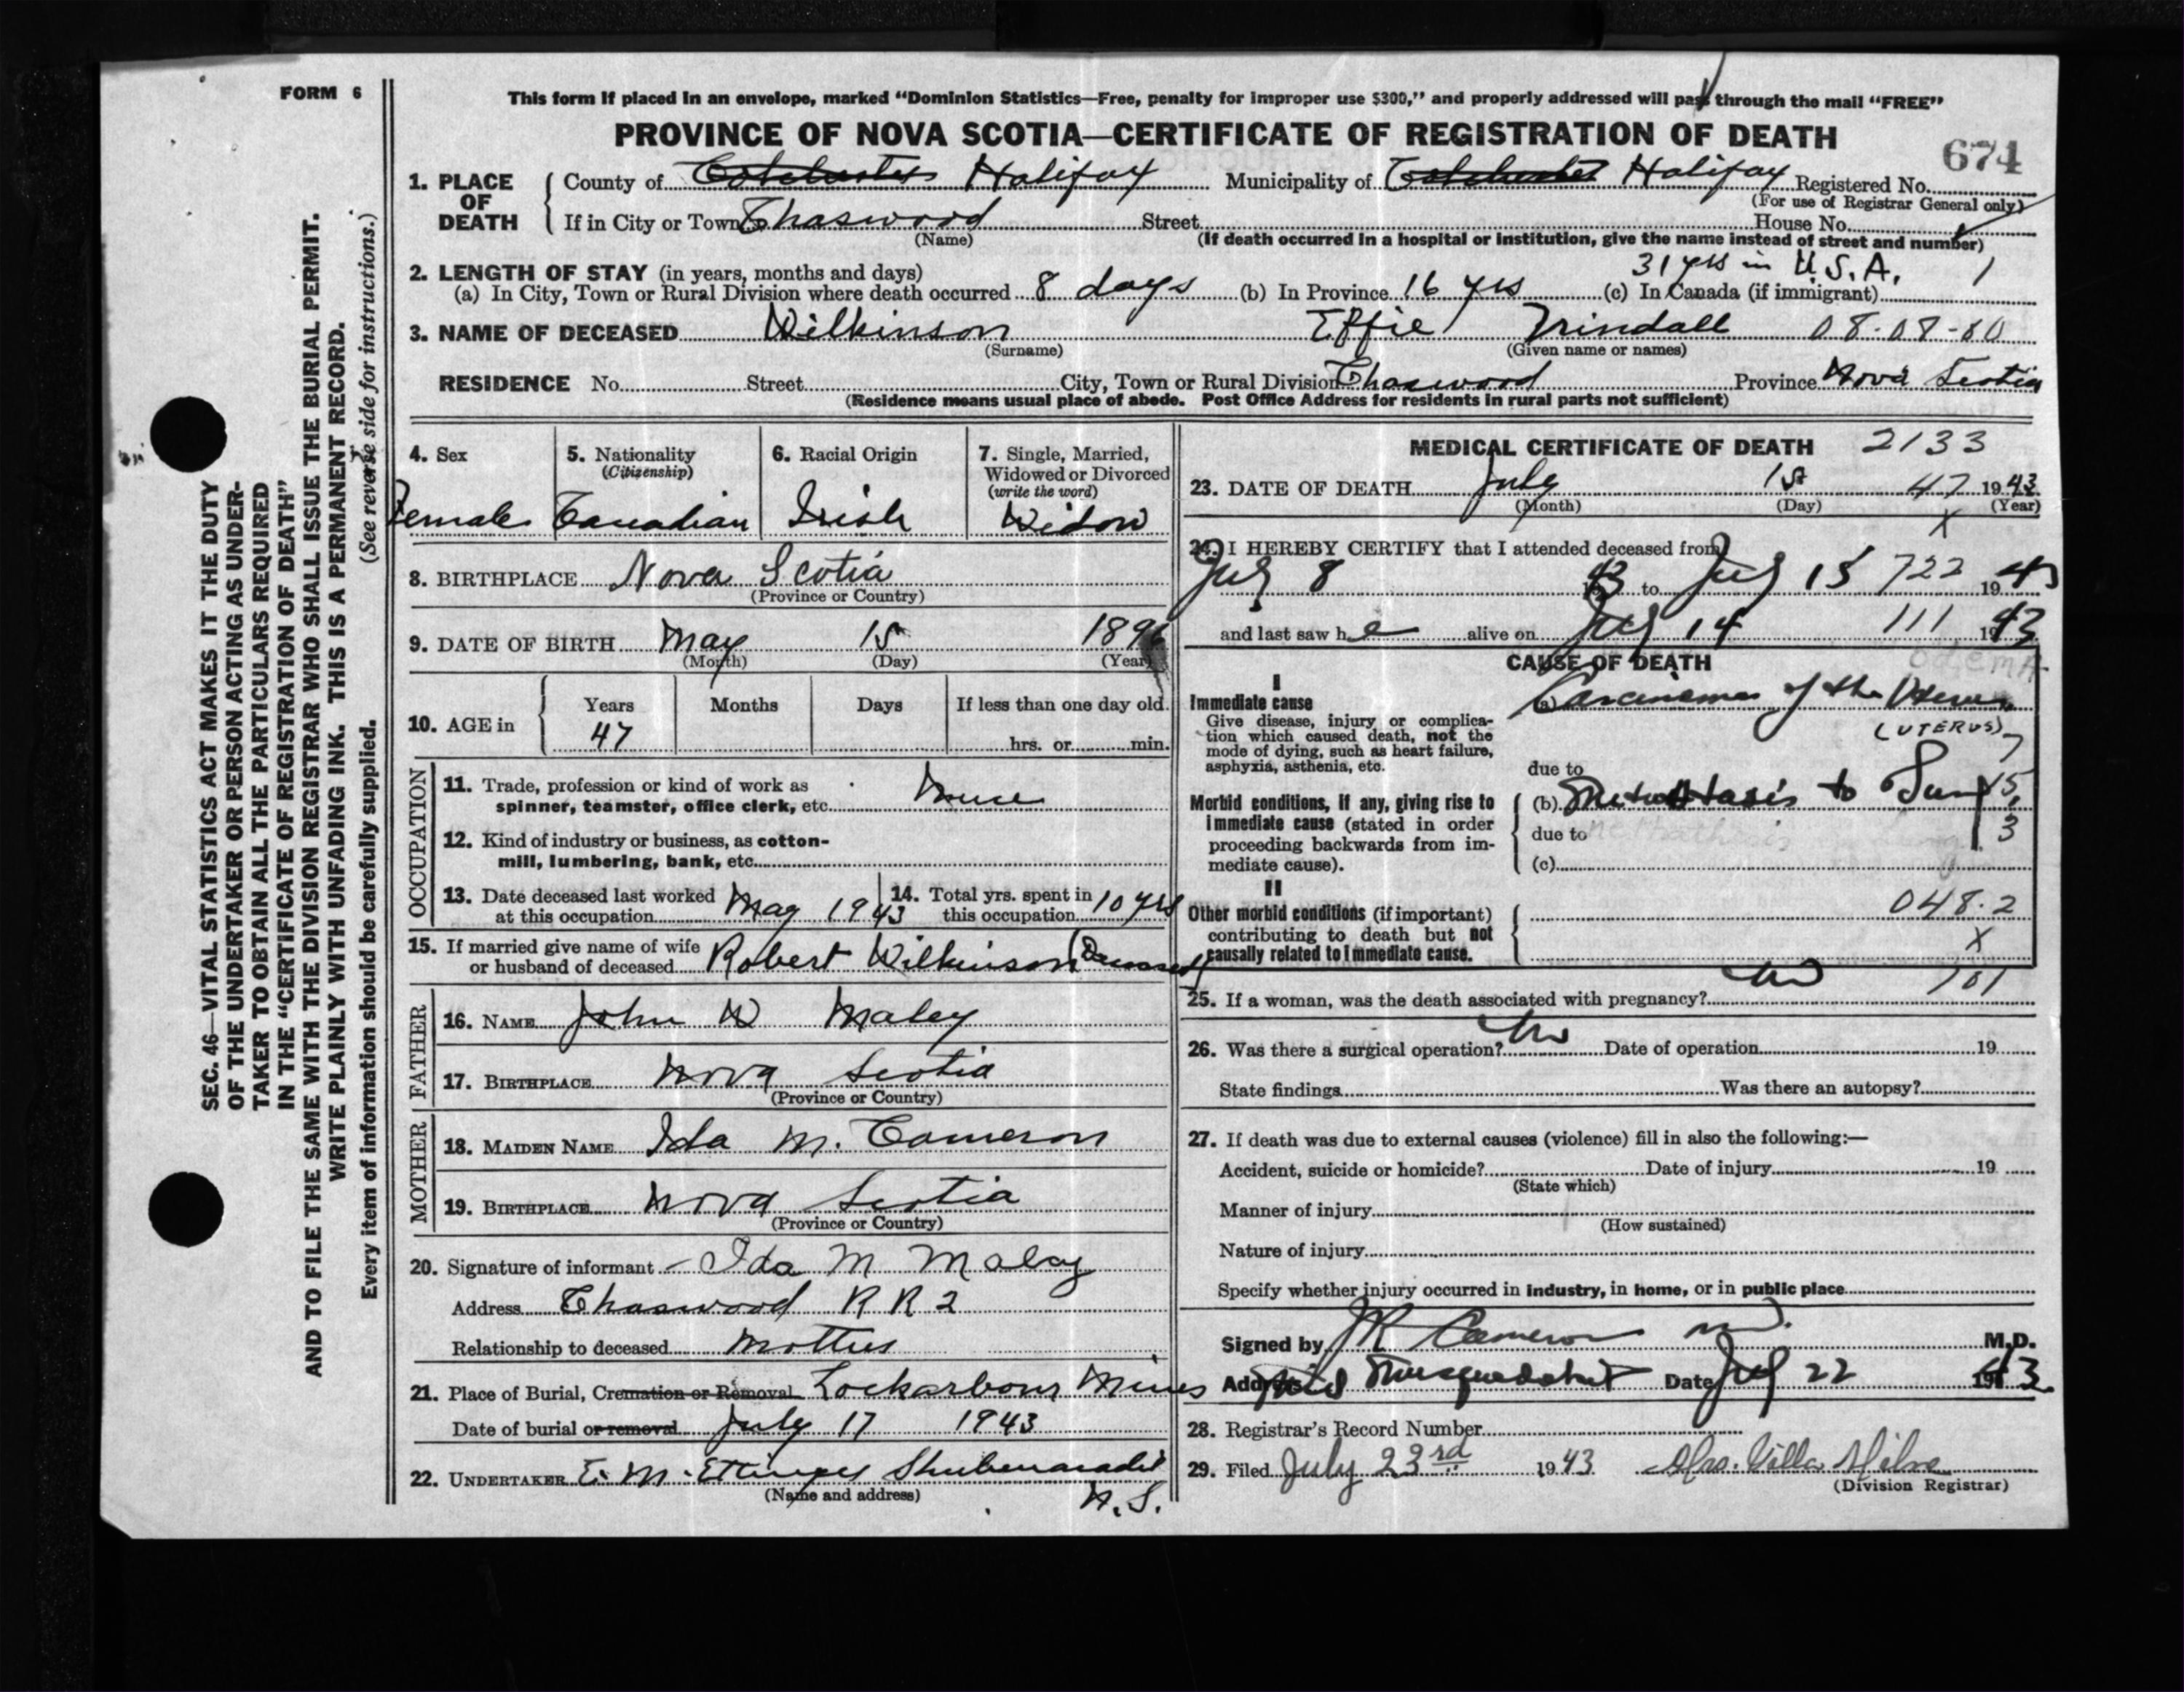 FORM 6
This form if placed in an envelope, marked “Dominion Statistics—Free, penalty for improper use $300,” and properly addressed will pass through the mail “FREE”
PROVINCE OF NOVA SCOTIA—CERTIFICATE OF REGISTRATION OF DEATH
674
1. PLACE OF DEATH
County of Colchester Halifax Municipality of Colchester Halifax Registered No.
(For use of Registrar General only)
If in City or Town Chaswood Street House No.
(Name) (If death occurred in a hospital or institution, give the name instead of street and number)
2. LENGTH OF STAY (in years, months and days) 31 yrs in U.S.A. 1
(a) In City, Town or Rural Division where death occurred 8 days (b) In Province 16 yrs (c) In Canada (if immigrant)
3. NAME OF DECEASED Wilkinson Effie 08-08-60
(Surname) (Given name or names)
RESIDENCE No. Street City, Town or Rural Division Chaswood Province Nova Scotia
(Residence means usual place of abode. Post Office Address for residents in rural parts not sufficient)
4. Sex
Female
5. Nationality
(Citizenship)
Canadian
6. Racial Origin
Irish
7. Single, Married,
Widowed or Divorced
(write the word)
Widow
8. BIRTHPLACE Nova Scotia
(Province or Country)
9. DATE OF BIRTH May 15 1896
(Month) (Day) (Year)
10. AGE in
Years Months Days If less than one day old
47 hrs. or min.
OCCUPATION
11. Trade, profession or kind of work as
spinner, teamster, office clerk, etc. Nurse
12. Kind of industry or business, as cotton-
mill, lumbering, bank, etc.
13. Date deceased last worked
at this occupation May 1943
14. Total yrs. spent in
this occupation 10 yrs
15. If married give name of wife
or husband of deceased Robert Wilkinson (Deceased)
FATHER
16. NAME John W Maley
17. BIRTHPLACE Nova Scotia
(Province or Country)
MOTHER
18. MAIDEN NAME Ida M. Cameron
19. BIRTHPLACE Nova Scotia
(Province or Country)
20. Signature of informant Ida M Maley
Address Chaswood R R 2
Relationship to deceased Mother
21. Place of Burial, Cremation or Removal Mines
Date of burial or removal July 17 1943
22. UNDERTAKER E. M. Ettinger Shubenacadie
(Name and address) N.S.
MEDICAL CERTIFICATE OF DEATH 2133
23. DATE OF DEATH July 15 47 1943
(Month) (Day) (Year)
X
24. I HEREBY CERTIFY that I attended deceased from
July 8 1943 to July 15 722 1943
and last saw h e alive on July 14 111 1943
CAUSE OF DEATH
I
Immediate cause
Give disease, injury or complica-
tion which caused death, not the
mode of dying, such as heart failure,
asphyxia, asthenia, etc.
(a) Carcinoma of the Uterus
(UTERUS) 7
due to
Morbid conditions, if any, giving rise to
immediate cause (stated in order
proceeding backwards from im-
mediate cause).
(b) Metastasis to Lung 5
due to 3
(c)
II
Other morbid conditions (if important)
contributing to death but not
causally related to immediate cause.
048.2
X
25. If a woman, was the death associated with pregnancy? No 701
26. Was there a surgical operation? No Date of operation 19
State findings Was there an autopsy?
27. If death was due to external causes (violence) fill in also the following:—
Accident, suicide or homicide? Date of injury 19
(State which)
Manner of injury
(How sustained)
Nature of injury
Specify whether injury occurred in industry, in home, or in public place
Signed by Cameron M.D.
Address Mid Musquodoboit Date July 22 1943
28. Registrar's Record Number
29. Filed July 23rd 1943 Mrs. Villa Milne
(Division Registrar)
SEC. 46—VITAL STATISTICS ACT MAKES IT THE DUTY
OF THE UNDERTAKER OR PERSON ACTING AS UNDER-
TAKER TO OBTAIN ALL THE PARTICULARS REQUIRED
IN THE “CERTIFICATE OF REGISTRATION OF DEATH”
AND TO FILE THE SAME WITH THE DIVISION REGISTRAR WHO SHALL ISSUE THE BURIAL PERMIT.
WRITE PLAINLY WITH UNFADING INK. THIS IS A PERMANENT RECORD.
(See reverse side for instructions.)
Every item of information should be carefully supplied.